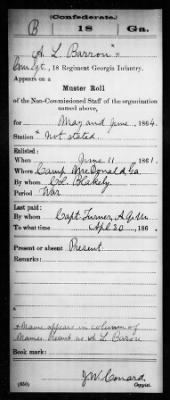 (Confederate.)
B 18 Ga.
A L Barron
Com Sgt., 18 Regiment Georgia Infantry.
Appears on a
Muster Roll
of the Non-Commissioned Staff of the organization
named above,
for May and June, 1864.
Station Not stated
Enlisted:
When June 11, 1861.
Where Camp McDonald Ga
By whom Col. Blakely
Period War
Last paid:
By whom Capt. Turner, A.Q.M.
To what time Apl 30, 186
Present or absent Present
Remarks:
Name appears in column of
Names Present as A. L. Birron
Book mark:
(850)
J W Conard
Copyist.